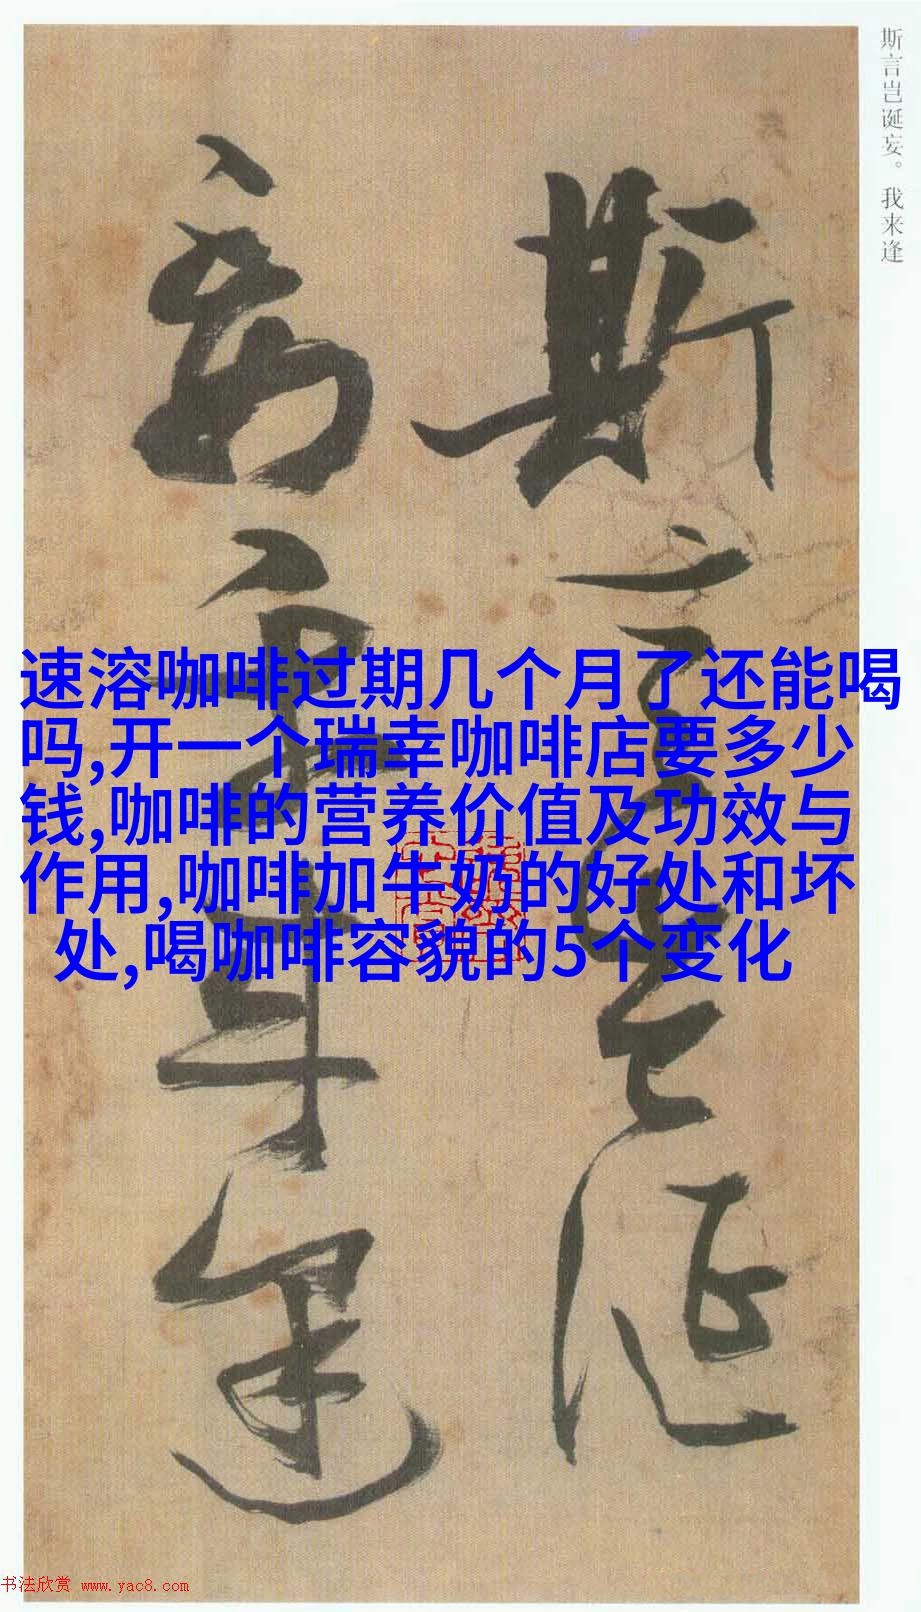 斯言岂诞妄。我来逢
斯言岂诞
妄我来逢
速溶咖啡过期几个月了还能喝
吗,开一个瑞幸咖啡店要多少
钱,咖啡的营养价值及功效与
作用,咖啡加牛奶的好处和坏
处,喝咖啡容貌的5个变化
书法欣赏 www.yac8.com